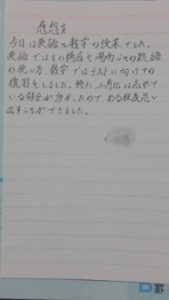 感想文
今日は英語と数学の授業でした。
英語では文の構成や場面ごとの熟語
の使い方、数学ではテストに向けての
復習をしました。特に三角比は忘れて
いる部分が多かったので ある程度思い
出すことができました。